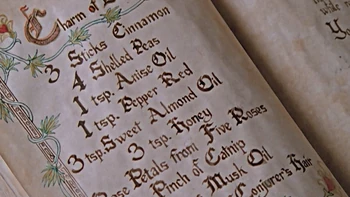 Charm of
3 Sticks Cinnamon
4 Shelled Peas
1 tsp. Anise Oil
1 tsp. Pepper Red
3 tsp. Sweet Almond Oil
3 tsp. Honey
Rose Petals from Five Roses
Pinch of Catnip
Musk Oil
Conjurer's Hair